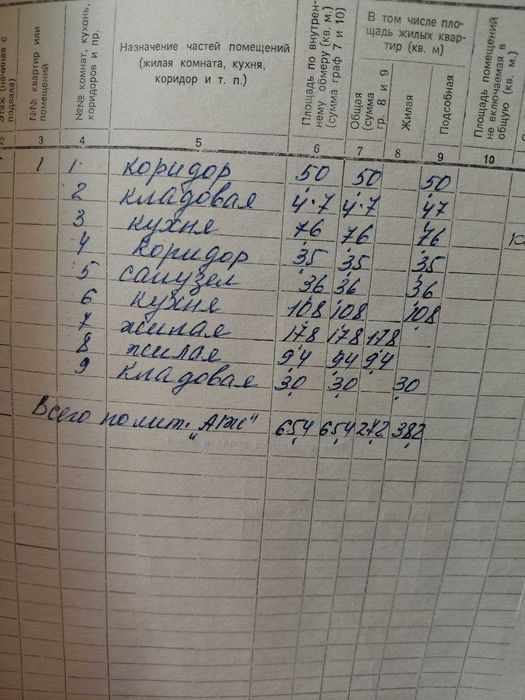 Этаж (начиная с подвала)
№№ квартир или помещений
№№ комнат, кухонь, коридоров и пр.
Назначение частей помещений
(жилая комната, кухня,
коридор и т. п.)
Площадь по внутреннему обмеру (кв. м.) (сумма граф 7 и 10)
В том числе площадь жилых квартир (кв. м)
Общая (сумма гр. 8 и 9
Жилая
Подсобная
Площадь помещений не включаемая в общую (кв. м.)
2 3 4 5 6 7 8 9 10
1 1. коридор 5.0 5.0 5.0
2 кладовая 4.7 4.7 4.7
3 кухня 7.6 7.6 7.6
4 коридор 3.5 3.5 3.5
5 санузел 3.6 3.6 3.6
6 кухня 10.8 10.8 10.8
7 жилая 17.8 17.8 17.8
8 жилая 9.4 9.4 9.4
9 кладовая 3.0 3.0 3.0
Всего по лит. "А 65.4 65.4 27.2 38.2